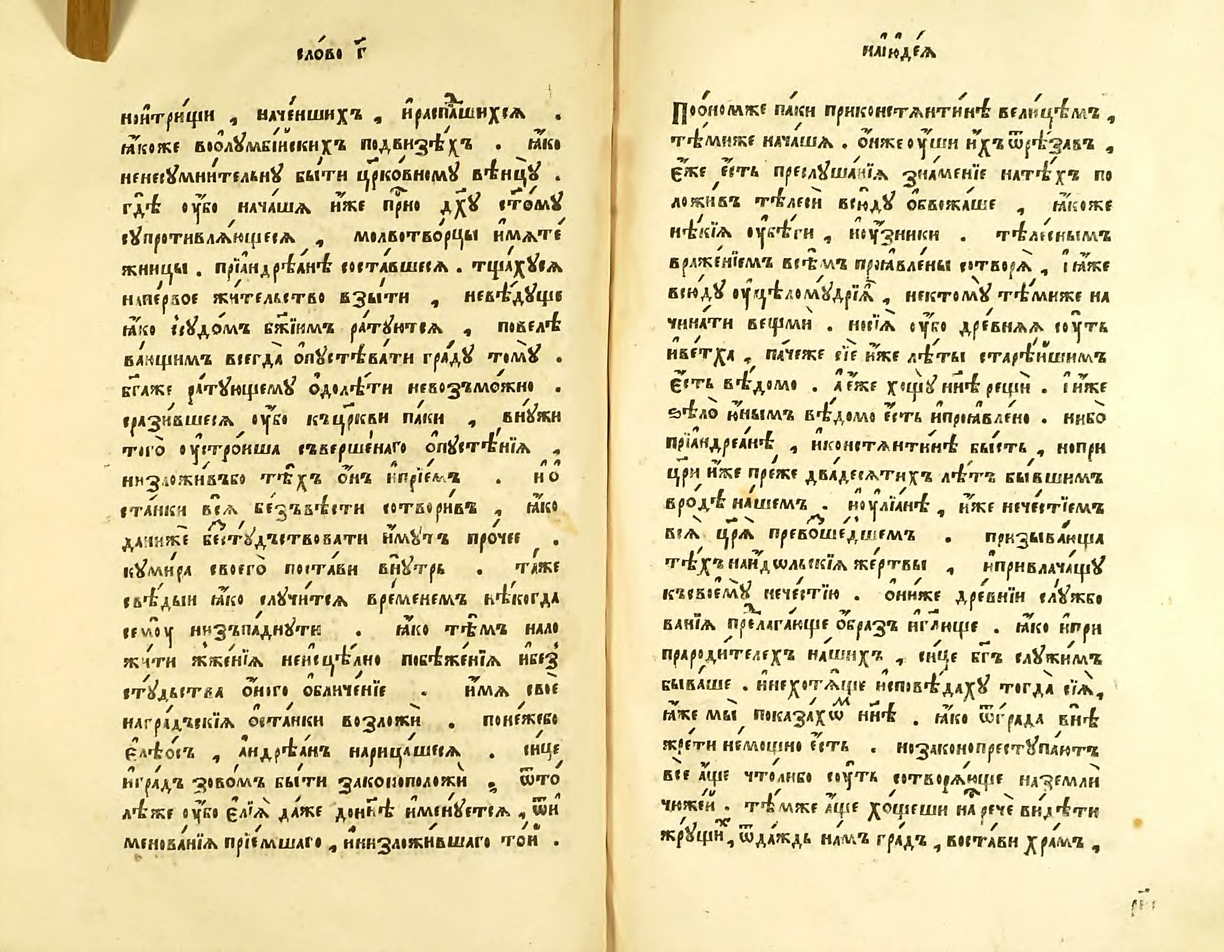 сло́во г҃
но́йтри́щи , наче́ншихъ , и҆распѧ́шихсѧ .
ꙗ҆́коже воо҆лумбі́йскихъ подви́зѣхъ . ꙗ҆́ко
ненесꙋмни́тельнꙋ бы́ти цр҃ко́вномꙋ вѣнцꙋ̀ .
гдѣ̀ ᲂу҆́бо нача́шѧ и҆́же при́но дх҃ꙋ ст҃о́мꙋ
сꙋпротивлѧ́ющесѧ , молвотво́рцы и҆мѧте́
жницы . приа҆ндреа́нѣ соста́вшесѧ . тща́хꙋсѧ
напе́рвое жи́тельство взы́ти , невѣ́дꙋще
ꙗ҆́ко сꙋдо́мъ бж҃іимъ ра́тꙋютсѧ , повелѣ
ва́ющимъ всегда̀ ѻ҆пꙋстѣва́ти гра́дꙋ томꙋ̀ .
бг҃а́же ра́тꙋющемꙋ ѻ҆долѣ́ти невозъмо́жно .
срази́вшесѧ ᲂу҆́бо къцр҃кви па́ки , внꙋ́жи
того̀ ᲂу҆стро́иша съверше́наго ѻ҆пꙋстѣ́нїѧ ,
низложи́въбо тѣ́хъ ѻ҆́нъ и҆прїе́мъ . и҆ ѻ҆
ста́нки всѧ̀ безъвѣ́сти сотвори́въ , ꙗ҆́ко
дани́же бестꙋ́дьствовати и҆́мꙋтъ про́чее .
кꙋми́ра своего̀ поста́ви внꙋ́трь . та́же
свѣ́дыи ꙗ҆́ко слꙋчи́тсѧ вре́менемъ нѣ́когда
семоꙋ̀ низъпаднꙋ́ти . ꙗ҆́ко тѣ́мъ нало
жи́ти жже́нїѧ неисцѣ́лно побѣже́нїѧ и҆без̾
стꙋ́дьства ѻ҆́ного ѡ҆бличе́нїе . и҆́мѧ своѐ
награ́дъскїѧ ѻ҆ста́нки возложѝ . поне́жебо
є҆лѣѻ́съ , а҆ндреа́нъ нарица́шесѧ . си́це
и҆гра́дъ зово́мъ бы́ти законоположѝ , ѿто́
лѣже ᲂу҆́бо є҆лі́ѧ да́же дони́нѣ и҆менꙋ́етсѧ , ѿи
менова́нїѧ прїе́мшаго , и҆низложи́вшаго то́й .
наїюде́ѧ
Поѻ҆́номже па́ки приконстѧнти́нѣ вели́цѣмъ ,
тѣ́миже нача́шѧ . ѻ҆́нже ᲂу҆́ши и҆́хъ ѿрѣ́завъ ,
є҆́же є҆́сть преслꙋша́нїѧ зна́менїе натѣ́хъ по
ложи́въ тѣ́леси всю́дꙋ ѻ҆бвожа́ше , ꙗ҆́коже
нѣ́кїѧ ᲂу҆бѣ́ги , и҆ᲂу҆́зники . тѣле́снымъ
вражде́нїемъ всѣ́мъ проꙗвле́ны сотворѧ̀ , і҆ ꙗ҆́же
всю́дꙋ ᲂу҆цѣломꙋ́дрїѧ , некто́мꙋ тѣ́миже на
чина́ти вещмѝ . носїѧ̀ ᲂу҆́бо дре́внѧѧ сꙋ́ть
и҆ве́тха , па́чеже сїѐ и҆́же лѣ́ты старѣ́йшимъ
є҆́сть вѣ́домо . а҆ є҆́же хощꙋ̀ нн҃ѣ рещѝ . і҆ и҆́же
ѕѣлѡ̀ ю҆́нымъ вѣ́домо є҆́сть и҆проꙗвле́но . ни́бо
прїа҆ндреа́нѣ , и҆констѧнти́нѣ бы́сть , нопри
цр҃и и҆́же пре́же двадесѧ́тихъ лѣ́тъ бы́вшимъ
вро́дѣ на́шемъ . и҆ᲂу҆лїа́нѣ , и҆́же нече́стїемъ
всѧ̀ цр҃ѧ̀ превоше́дшемъ . призыва́юща
тѣ́хъ наи҆́дѡльскїѧ же́ртвы , и҆привлача́щꙋ
късвоемꙋ̀ нече́стїю . ѻ҆ни́же дре́внїи слꙋ́жбо
ванїѧ прелага́юще ѻ҆́бразъ и҆гл҃юще . ꙗ҆́ко и҆при
прароди́телехъ на́шихъ , си́це бг҃ъ слꙋжи́мъ
быва́ше . и҆нехотѧ́ще и҆сповѣ́дахꙋ тогда̀ сїѧ̀ ,
ꙗ҆́же мы̀ показа́хѡм нн҃ѣ . ꙗ҆́ко ѿгра́да внѣ̀
жре́ти немо́щно є҆́сть . нозаконопрестꙋпа́ютъ
всѐ а҆́ще чтоли́бо сꙋ́ть сотворѧ́юще наземлѝ
чюже́й . тѣ́мже а҆́ще хо́щеши на речѐ ви́дѣти
жрꙋ́щих , ѿда́ждь на́мъ гра́дъ , воста́ви хра́мъ ,